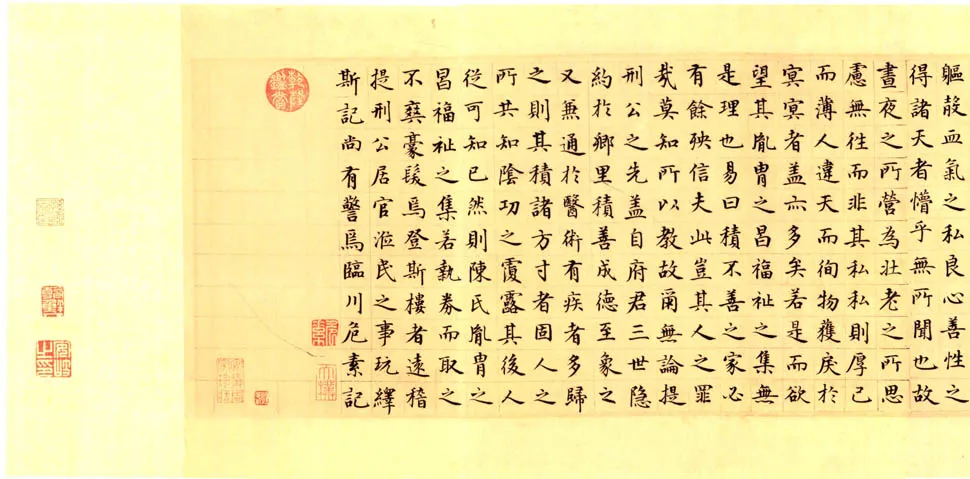 軀殼血氣之私良心善性之
得諸天者懵乎無所聞也故
晝夜之所營為壯老之所思
慮無徃而非其私私則厚己
而薄人違天而徇物獲戾於
冥冥者盖亦多矣若是而欲
望其胤胄之昌福祉之集無
是理也易曰積不善之家必
有餘殃信夫此豈其人之罪
㢤莫知所以教故爾無論提
刑公之先盖自府君三世隐
約於鄉里積善成德至象之
又兼通於醫術有疾者多歸
之則其積諸方寸者固人之
所共知隂功之霑露其後人
從可知已然則陳氏胤胄之
昌福祉之集若執券而取之
不爽豪髮焉登斯樓者遠稽
提刑公居官涖民之事玩繹
斯記尚有警焉臨川危素記
乾隆鑒賞